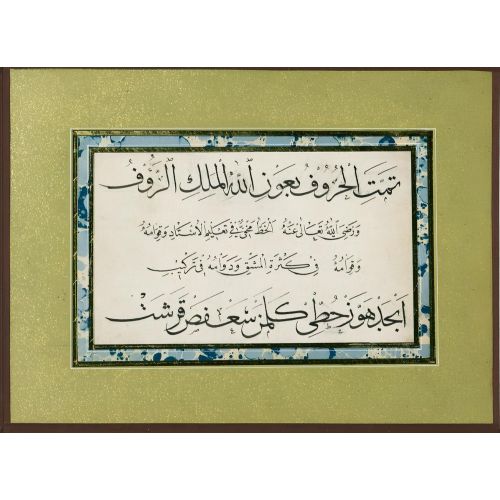 تمت الحروف بعون الله الملك الرؤف
ورضى الله تعالى عنه الخط مخفى فى تعليم الاستاد وقوامه
وقوامه فى كثرة المشق ودوامه فى تركيب
ابجد هوز حطى كلمن سعفص قرشت